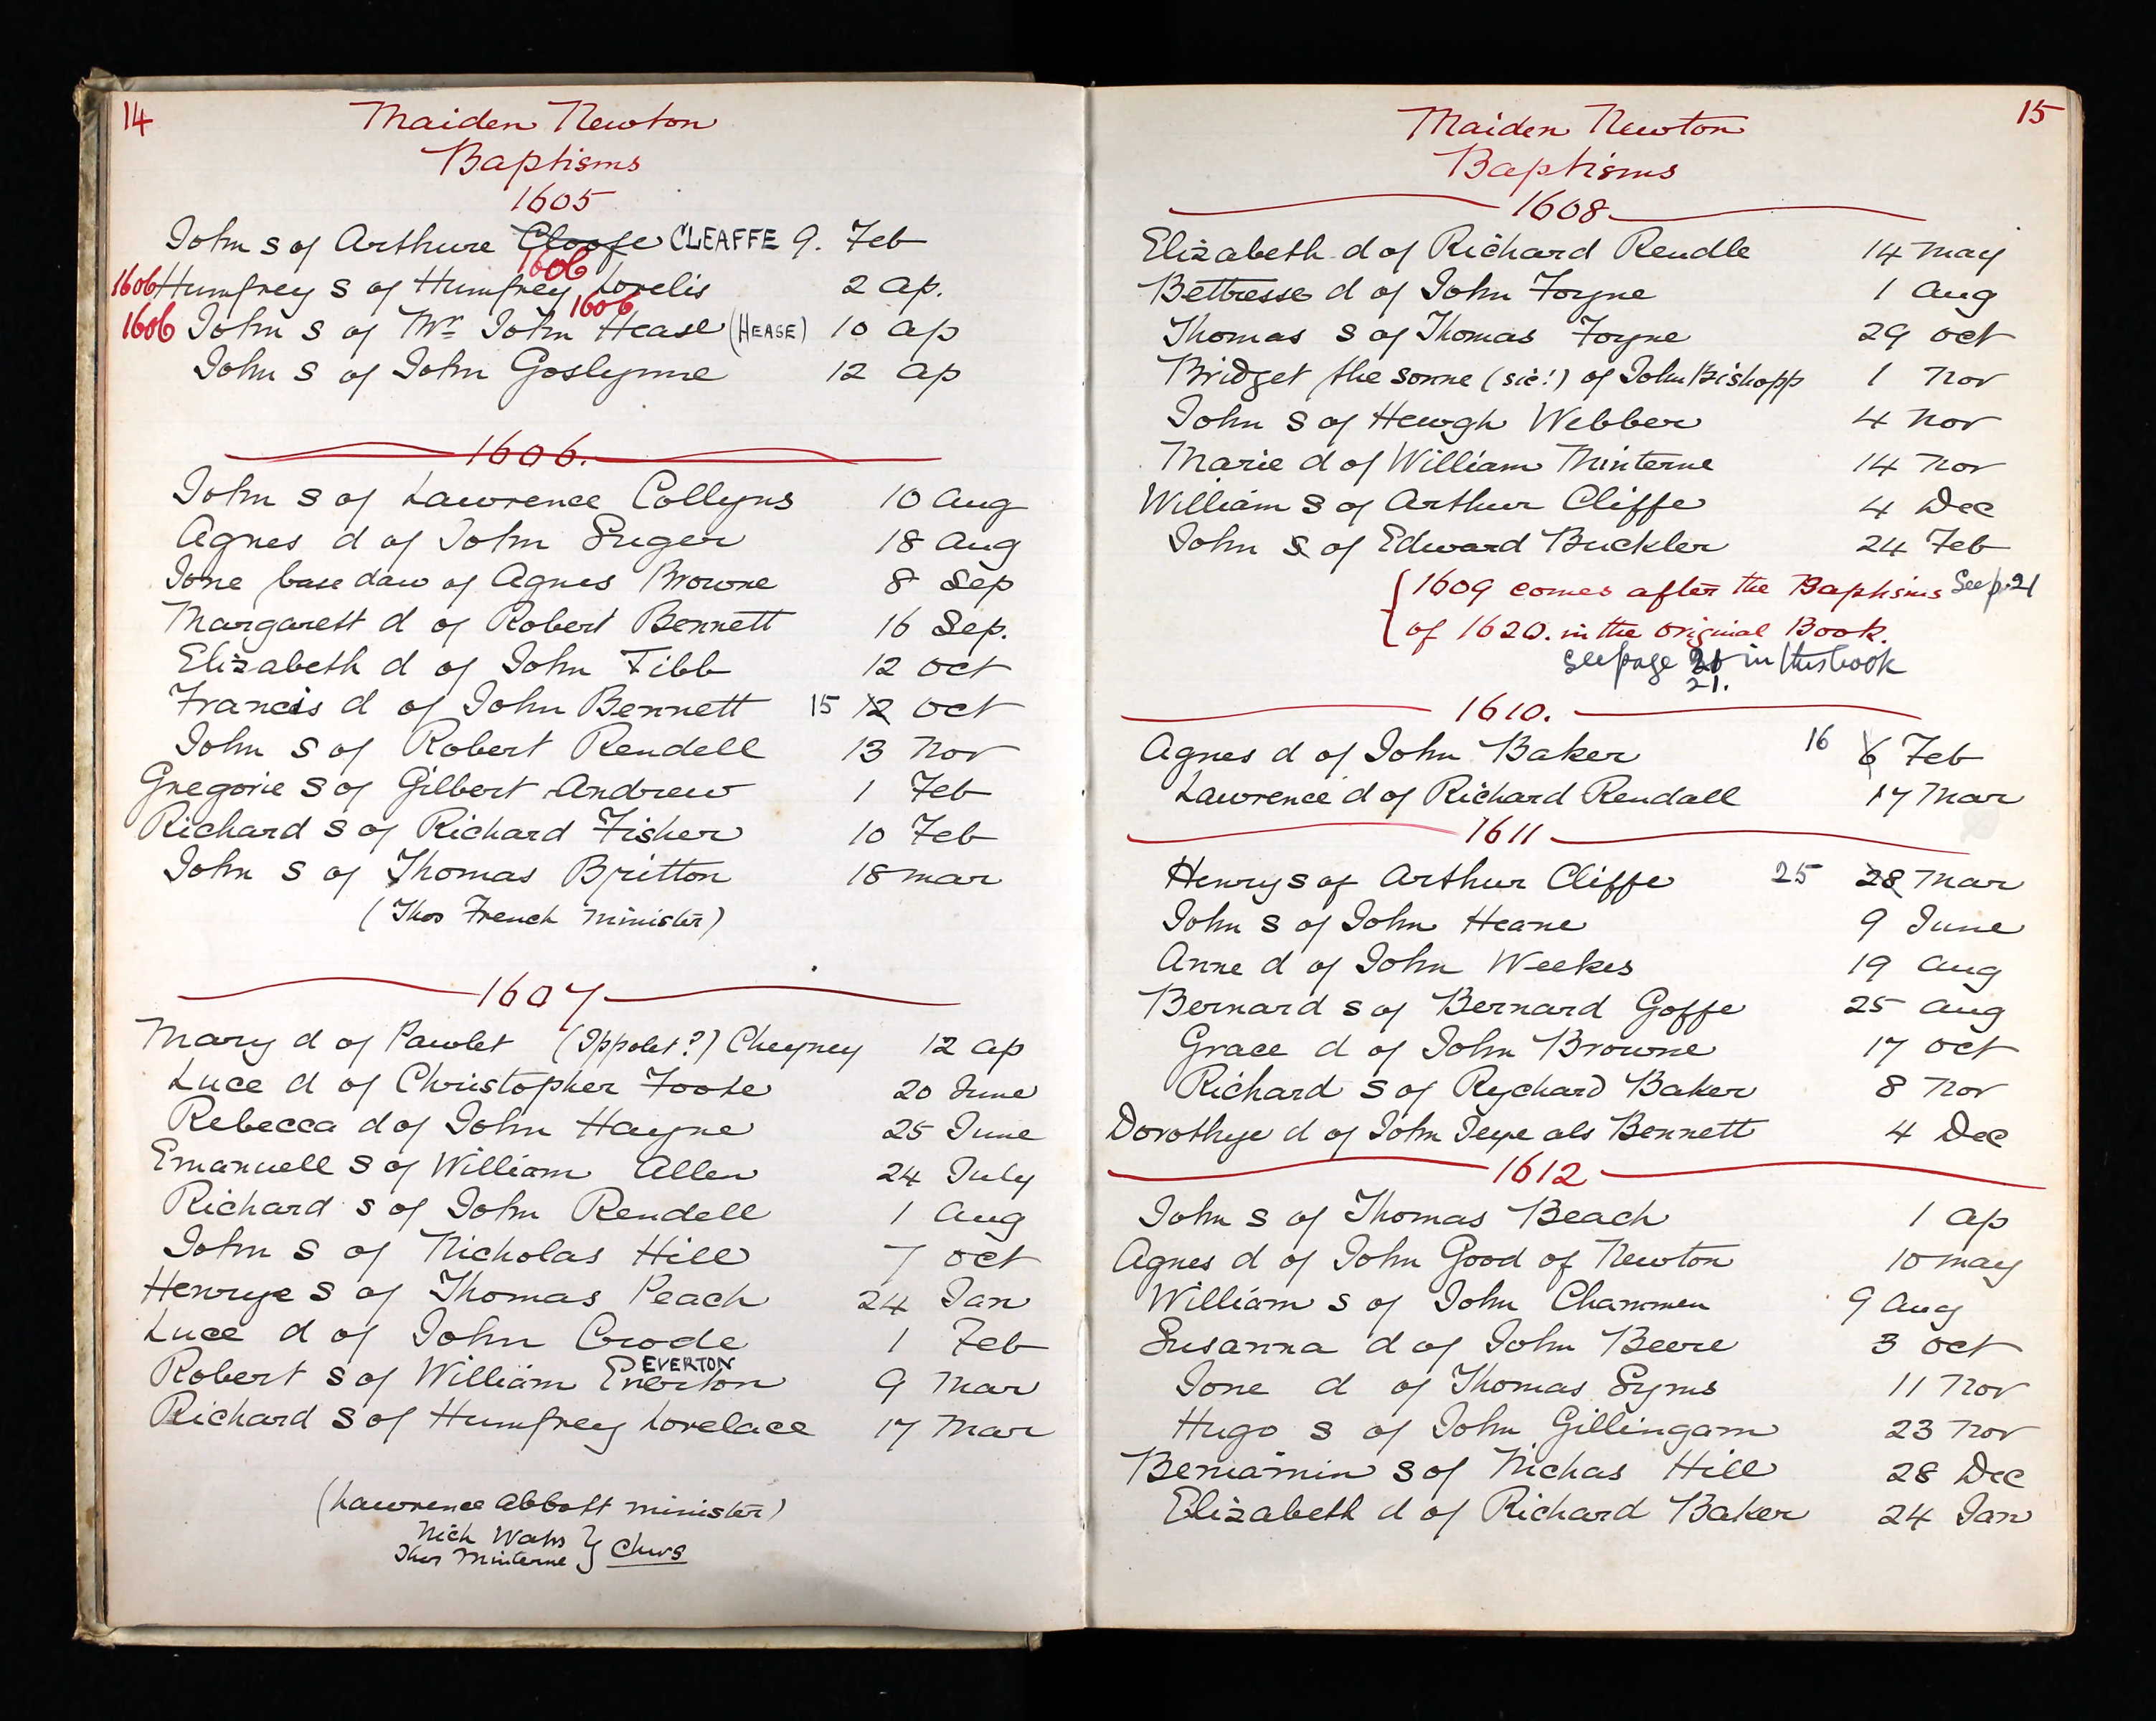 14
Maiden Newton
Baptisms
1605
John s of Arthure Cloofe CLEAFFE 9. Feb
1606
1606 Humfrey s of Humfrey Lovelis 2 ap.
1606
1606 John s of Mr John Hease (HEASE) 10 ap
John s of John Goslynne 12 ap
1606.
John s of Lawrence Collyns 10 aug
Agnes d of John Suger 18 aug
Jone base daw of Agnes Browne 8 Sep
Margarett d of Robert Bennett 16 Sep.
Elizabeth d of John Tibb 12 oct
Francis d of John Bennett 15 12 oct
John s of Robert Rendell 13 Nov
Gregorie s of Gilbert Andrew 1 Feb
Richard s of Richard Fisher 10 Feb
John s of Thomas Britton 18 mar
(Thos French Minister)
1607
Mary d of Pawlet (Ippolet?) Cheyney 12 ap
Luce d of Christopher Foote 20 June
Rebecca d of John Hayne 25 June
Emanuell s of William Allen 24 July
Richard s of John Rendell 1 aug
John s of Nicholas Hill 7 oct
Henrye s of Thomas Peach 24 Jan
Luce d of John Crode 1 Feb
EVERTON
Robert s of William Everton 9 Mar
Richard s of Humfrey Lovelace 17 Mar
(Lawrence Abbott minister)
Nich Wats
Thos Minterne } Chws
15
Maiden Newton
Baptisms
1608
Elizabeth d of Richard Rendle 14 may
Bettresse d of John Foyne 1 Aug
Thomas s of Thomas Foyne 29 oct
Bridget the sonne (sic!) of John Bishopp 1 Nov
John s of Hewgh Webber 4 Nov
Marie d of William Minterne 14 Nov
William s of Arthur Cliffe 4 Dec
John s of Edward Buckler 24 Feb
{ 1609 comes after the Baptisms See p. 21
of 1620. in the original Book.
see page in this book
21.
1610.
Agnes d of John Baker 16 6 Feb
Lawrence d of Richard Rendall 17 Mar
1611
Henry s of Arthur Cliffe 25 28 Mar
John s of John Heane 9 June
Anne d of John Weekes 19 Aug
Bernard s of Bernard Goffe 25 aug
Grace d of John Browne 17 oct
Richard s of Rychard Baker 8 Nov
Dorothye d of John Jeye als Bennett 4 Dec
1612
John s of Thomas Beach 1 ap
Agnes d of John Good of Newton 10 may
William s of John Chammen 9 Aug
Susanna d of John Beere 3 oct
Jone d of Thomas Syms 11 Nov
Hugo s of John Gillingam 23 Nov
Beniamin s of Nichas Hill 28 Dec
Elizabeth d of Richard Baker 24 Jan